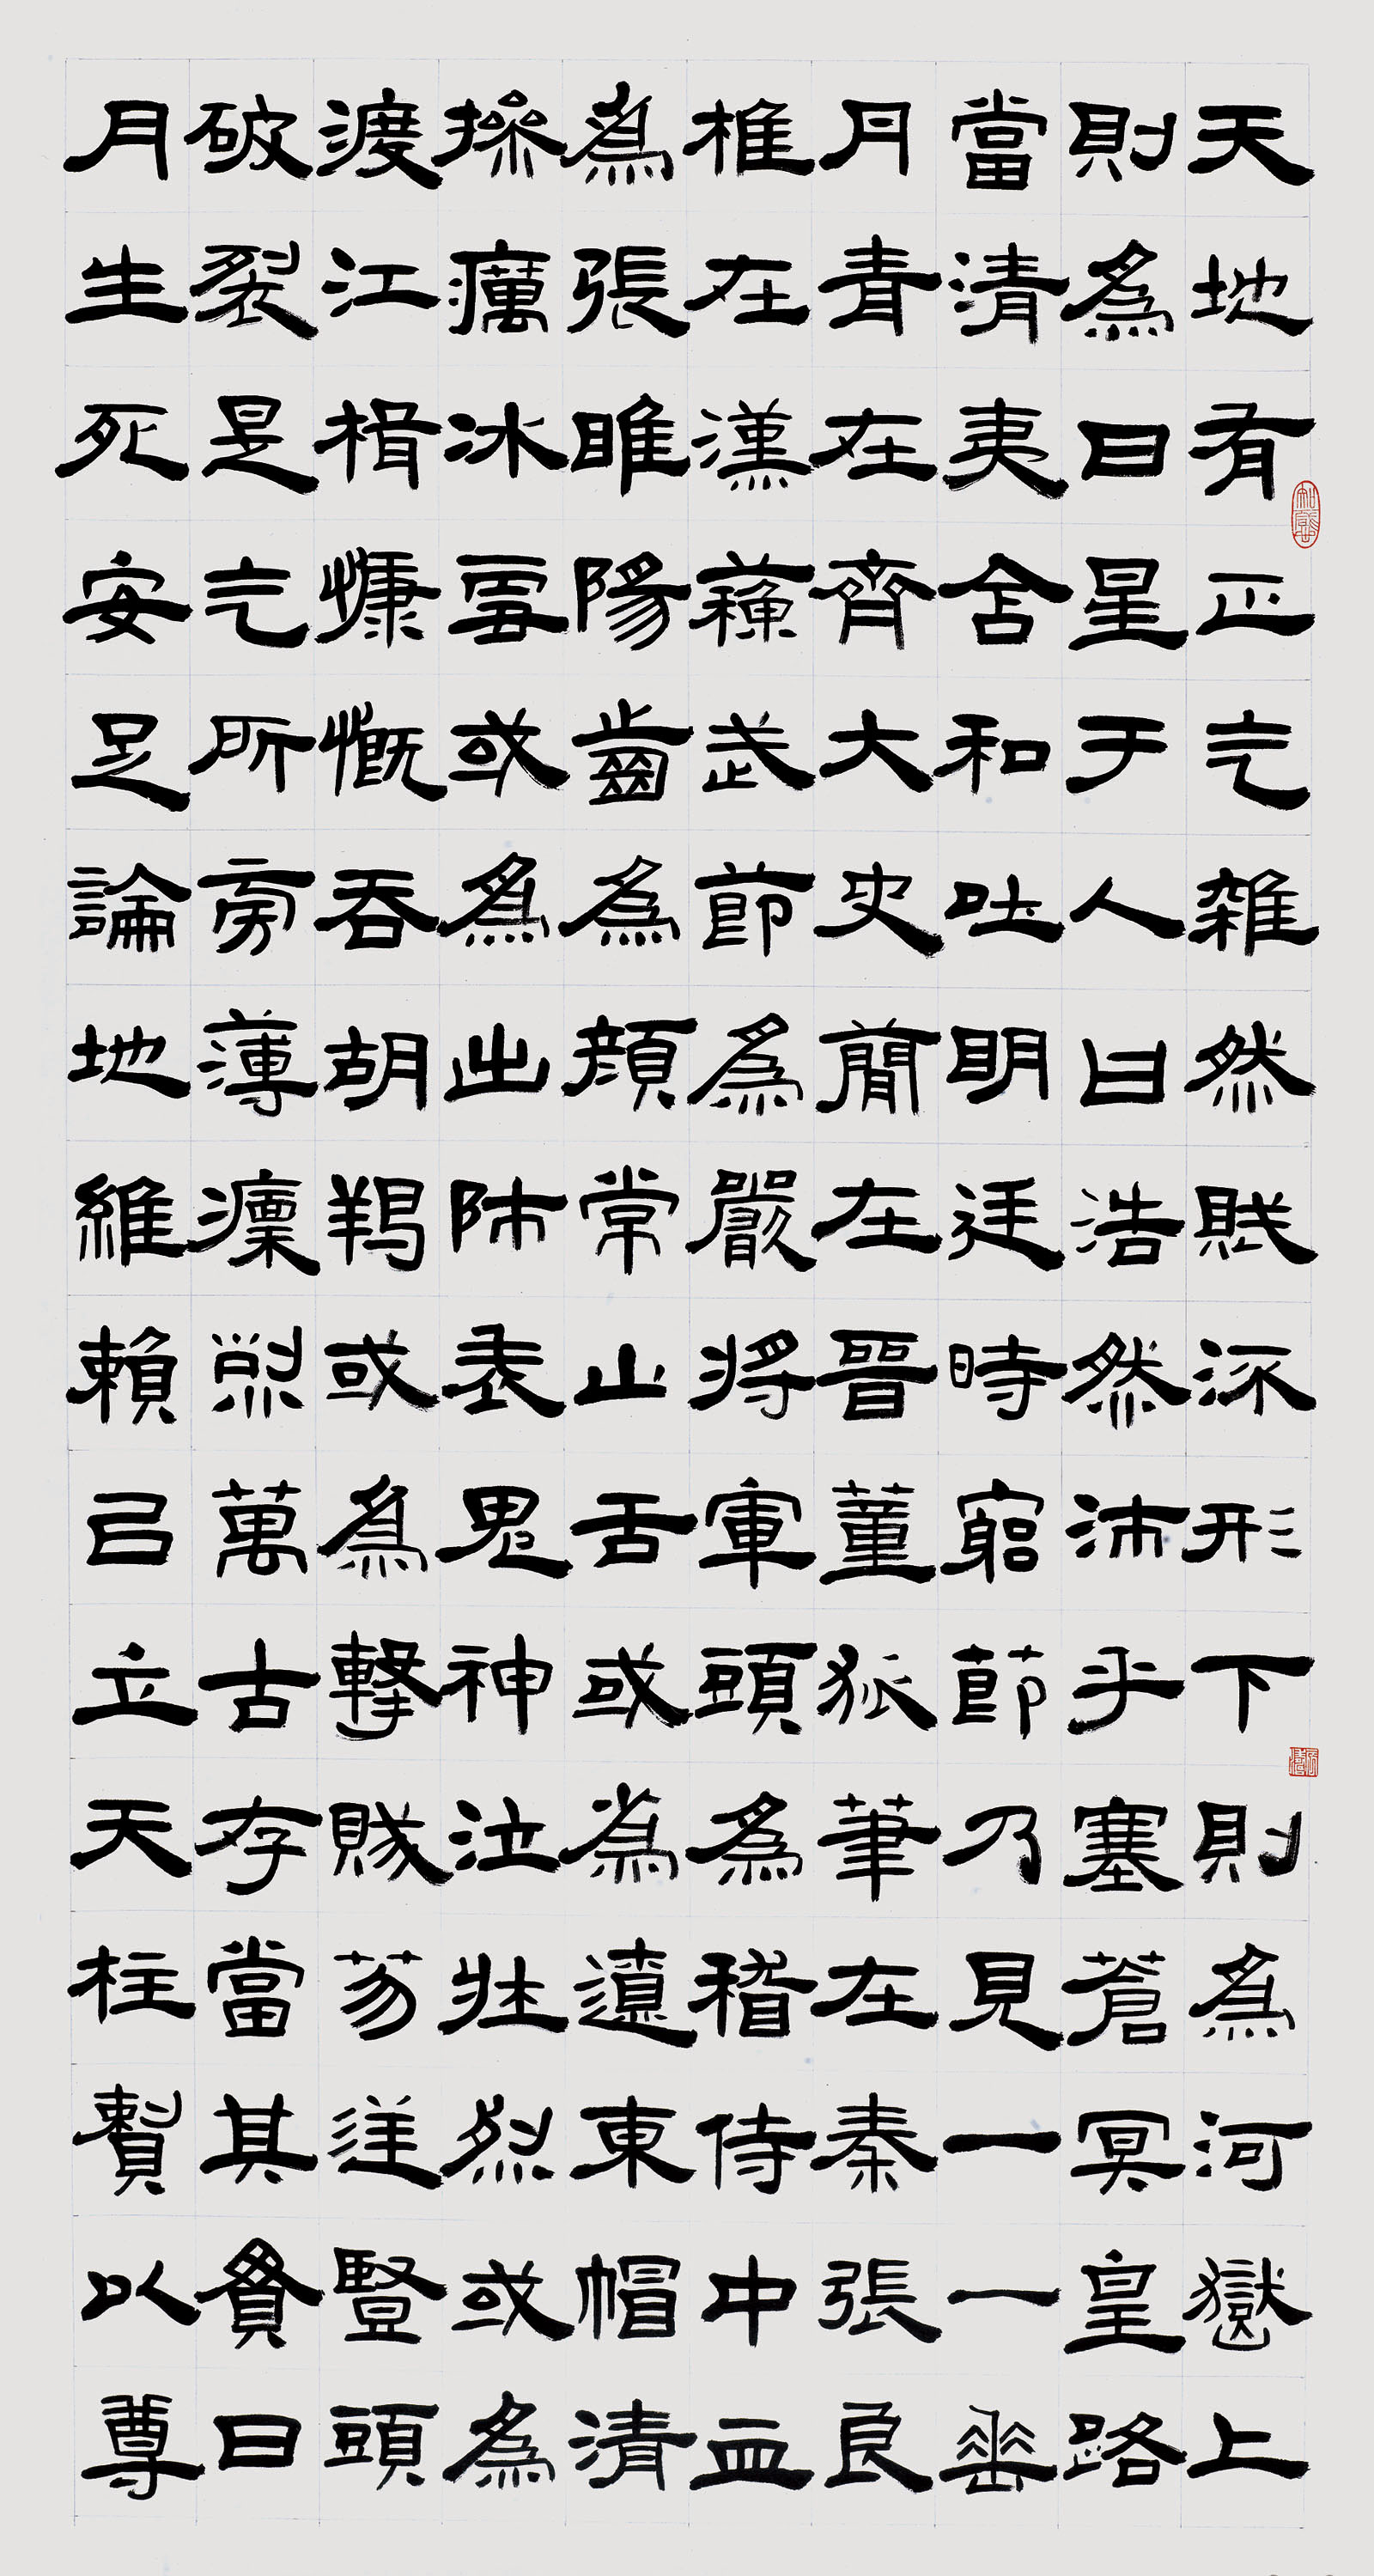 天地有正气雜然賦流形下則為河嶽上
則為日星于人曰浩然沛乎塞蒼冥皇路
當清夷含和吐明廷時窮節乃見一一垂
丹青在齊太史簡在晉董狐筆在秦張良
椎在漢蘇武節為嚴將軍頭為嵇侍中血
為張睢陽齒為顏常山舌或為遼東帽清
操厲冰雪或為出師表鬼神泣壯烈或為
渡江楫慷慨吞胡羯或為擊賊笏逆豎頭
破裂是气所旁薄凜烈萬古存當其貫日
月生死安足論地維賴以立天柱賴以尊